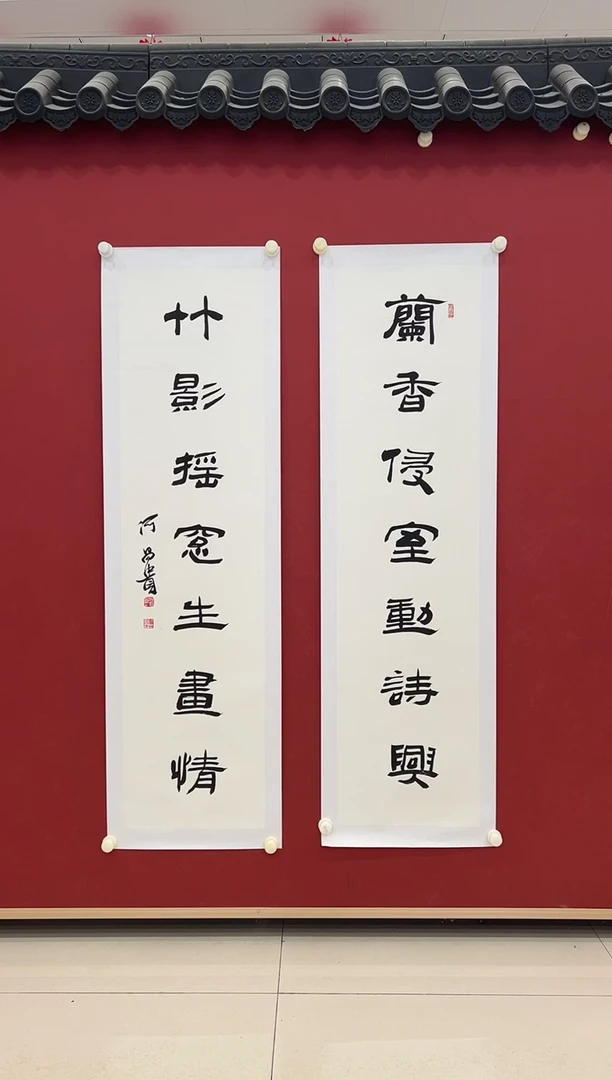 蘭香侵室動詩興
竹影摇窓生畫情
何昌貴